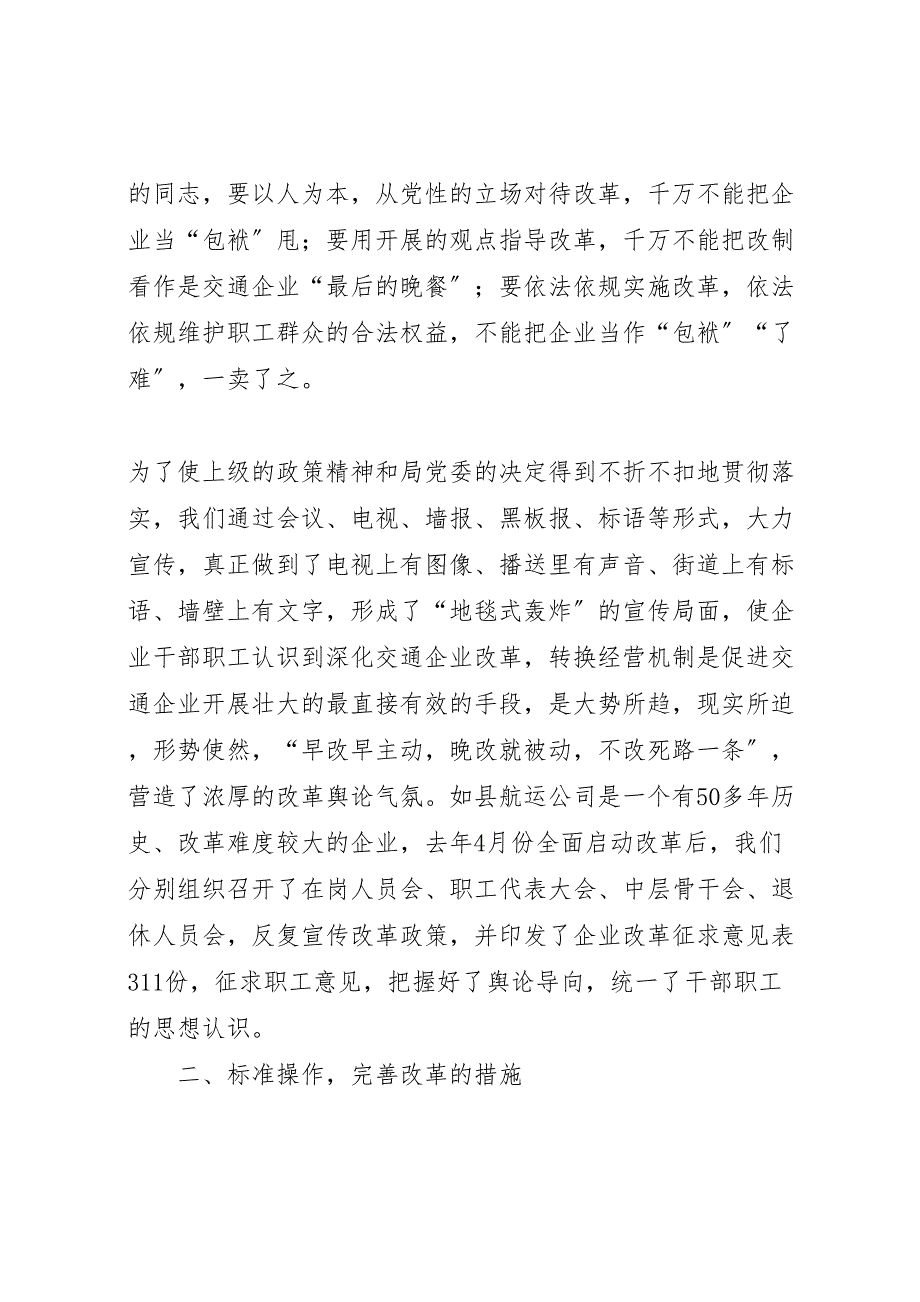 的同志，要以人为本，从党性的立场对待改革，千万不能把企
业当“包袱〞甩；要用开展的观点指导改革，千万不能把改制
看作是交通企业“最后的晚餐〞；要依法依规实施改革，依法
依规维护职工群众的合法权益，不能把企业当作“包袱〞“了
难〞，一卖了之。
为了使上级的政策精神和局党委的决定得到不折不扣地贯彻落
实，我们通过会议、电视、墙报、黑板报、标语等形式，大力
宣传，真正做到了电视上有图像、播送里有声音、街道上有标
语、墙壁上有文字，形成了“地毯式轰炸〞的宣传局面，使企
业干部职工认识到深化交通企业改革，转换经营机制是促进交
通企业开展壮大的最直接有效的手段，是大势所趋，现实所迫
，形势使然，“早改早主动，晚改就被动，不改死路一条〞，
营造了浓厚的改革舆论气氛。如县航运公司是一个有50多年历
史、改革难度较大的企业，去年4月份全面启动改革后，我们
分别组织召开了在岗人员会、职工代表大会、中层骨干会、退
休人员会，反复宣传改革政策，并印发了企业改革征求意见表
311份，征求职工意见，把握好了舆论导向，统一了干部职工
的思想认识。
二、标准操作，完善改革的措施